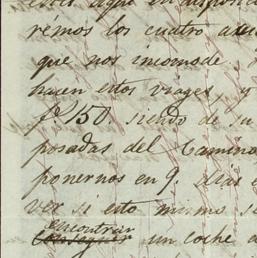 rémos los cuatro
que nos incomode
hacen estos viages, y
150. siendo de su
posadas del Camino
ponernos en 9. dias
ver si esto mismo
encontrar
un coche